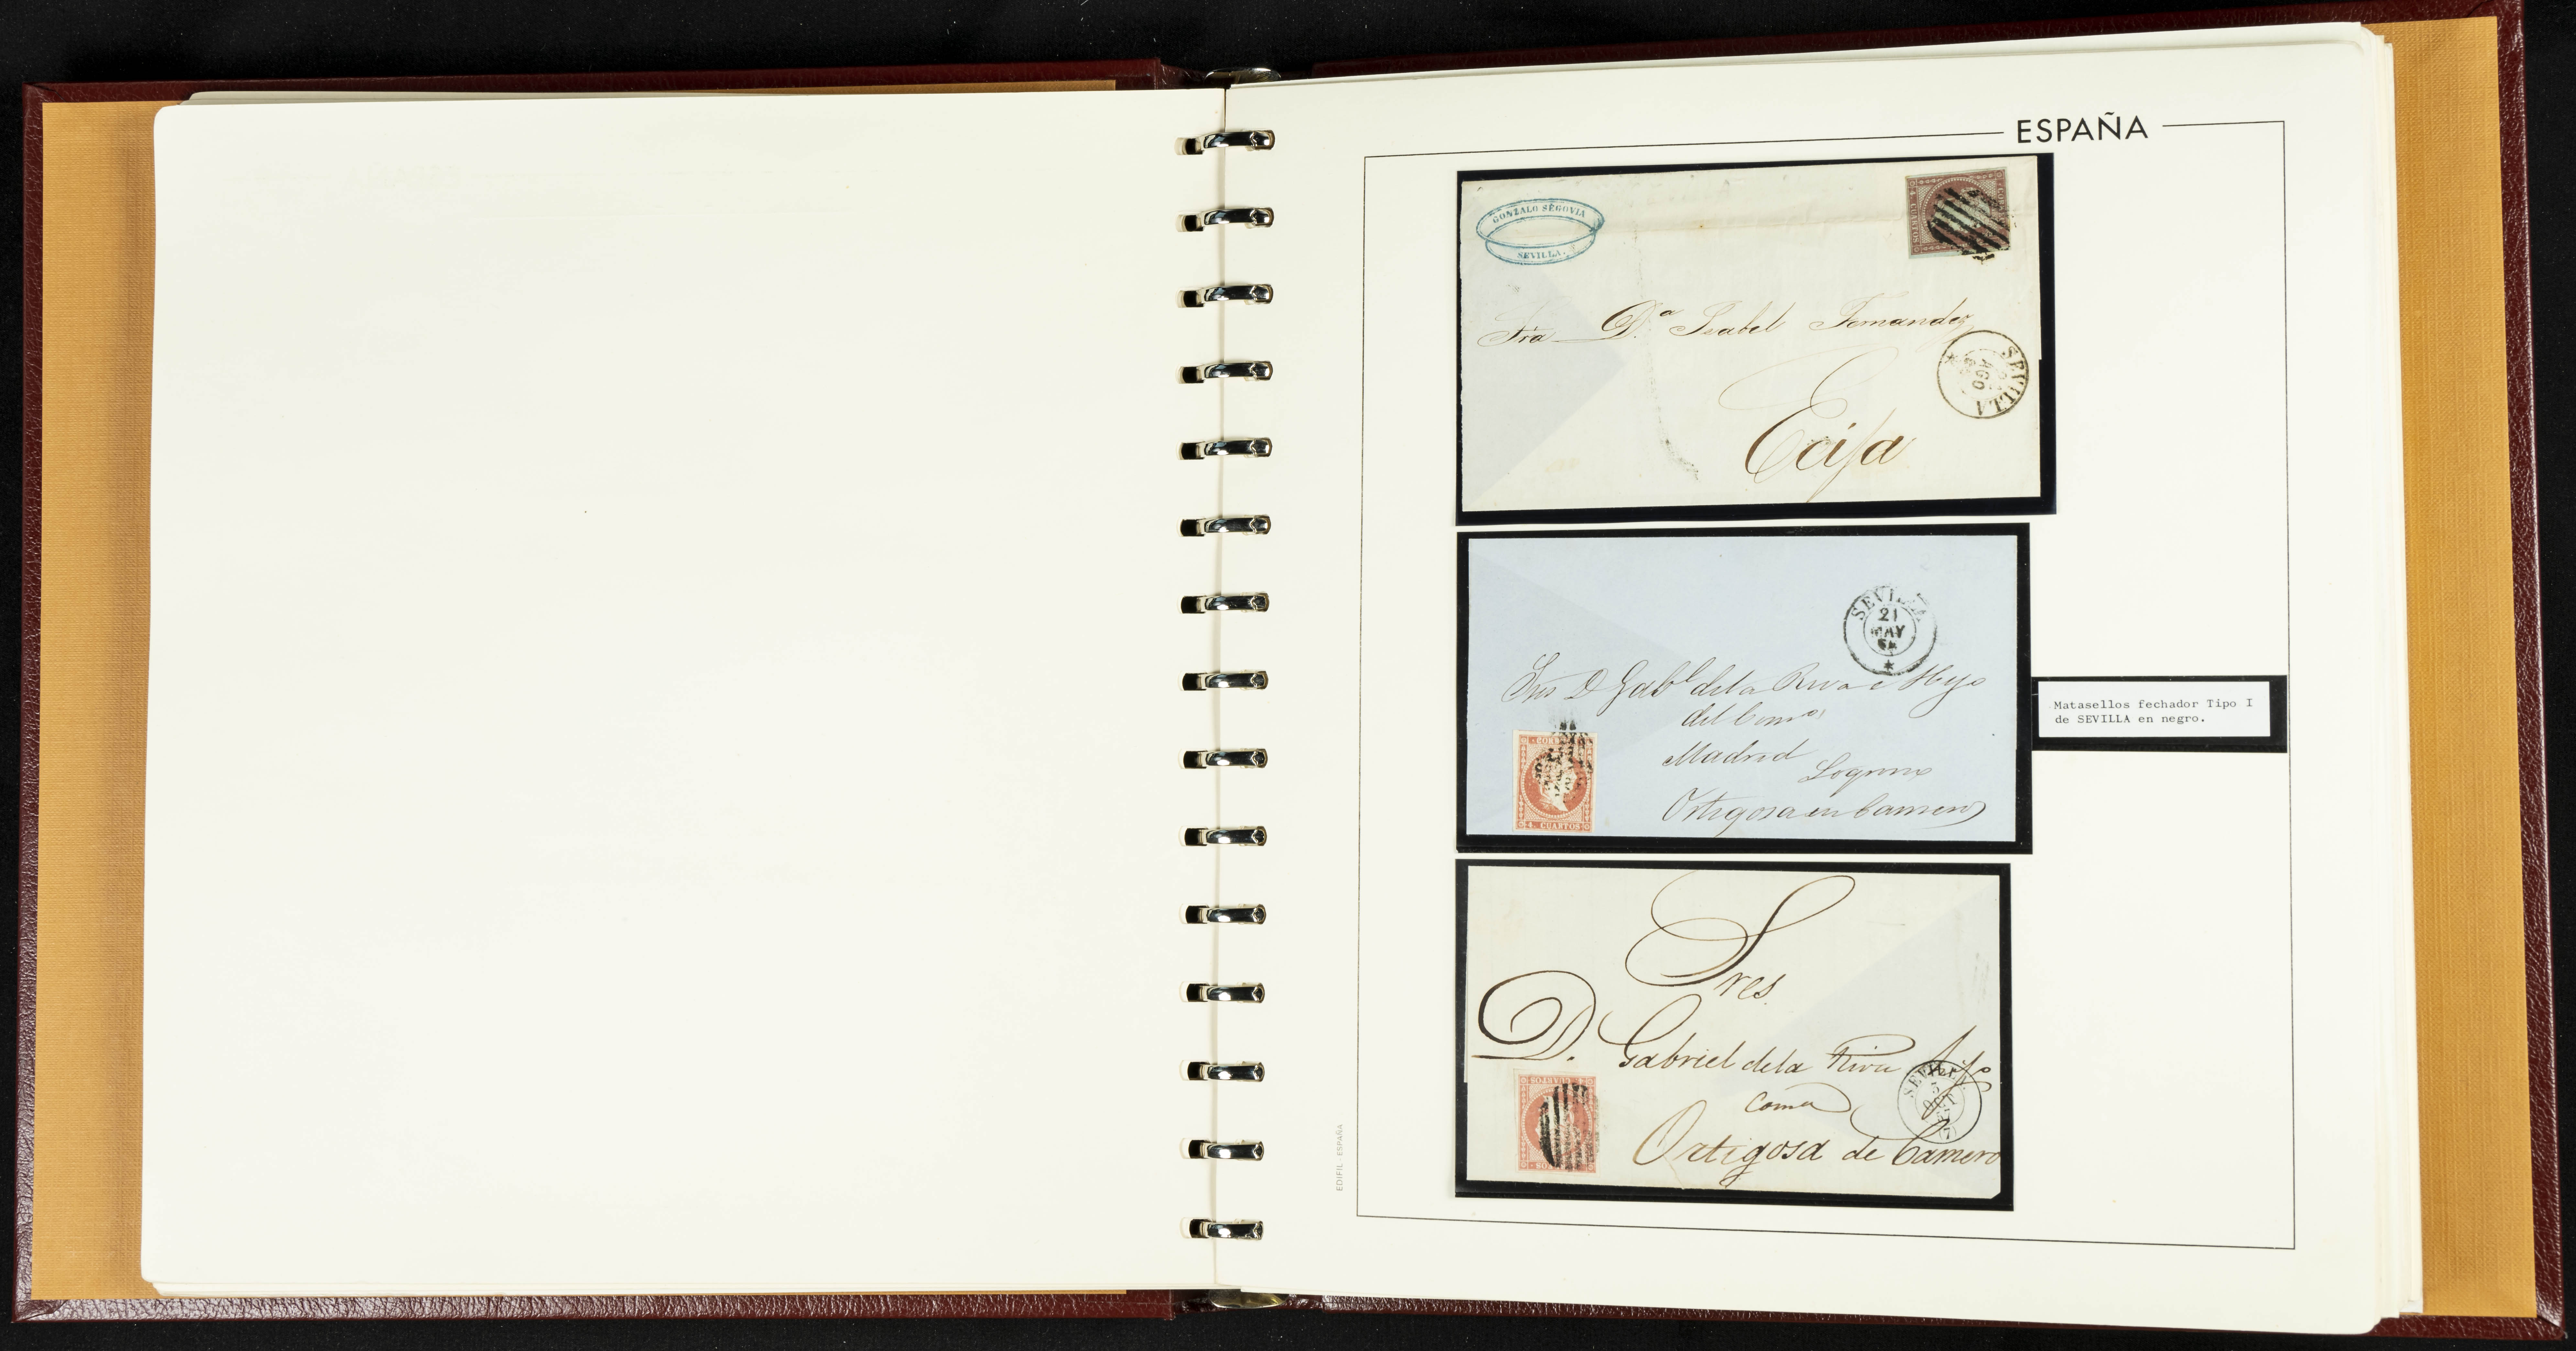 ESPAÑA
GONZALO SEGOVIA
SEVILLA.
Sra D.ª Isabel Fernandez
SEVILLA
AGO
Ecija
SEVILLA
21
MAY
Sres D Gabl de la Riva e Hijo
del Comº
Madrid
Logroño
Ortigosa en Cameros
CUARTOS
Matasellos fechador Tipo I
de SEVILLA en negro.
Sres
D. Gabriel de la Riva hijo
SEVILLA
5
OCT
Coma
Ortigosa de Camero
EDIFIL - ESPAÑA